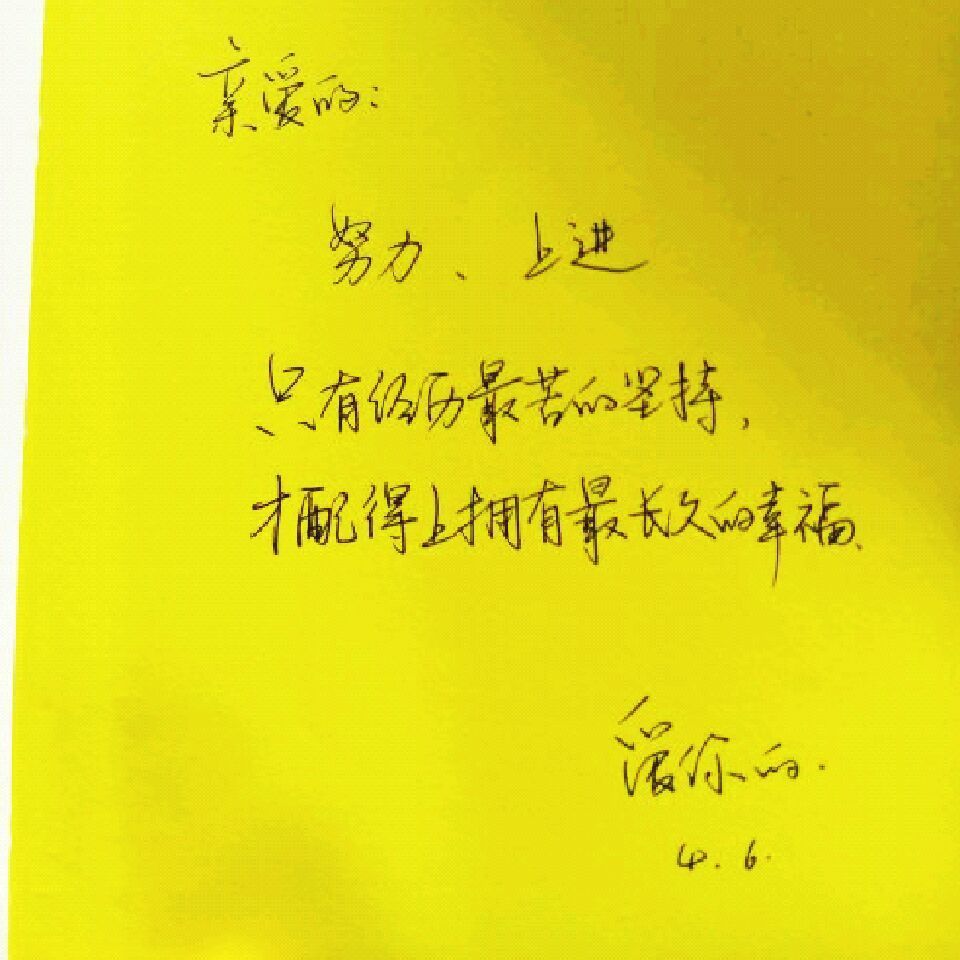 亲爱的:
努力、上进
只有经历最苦的坚持,
才配得上拥有最长久的幸福、
爱你的.
4.6.